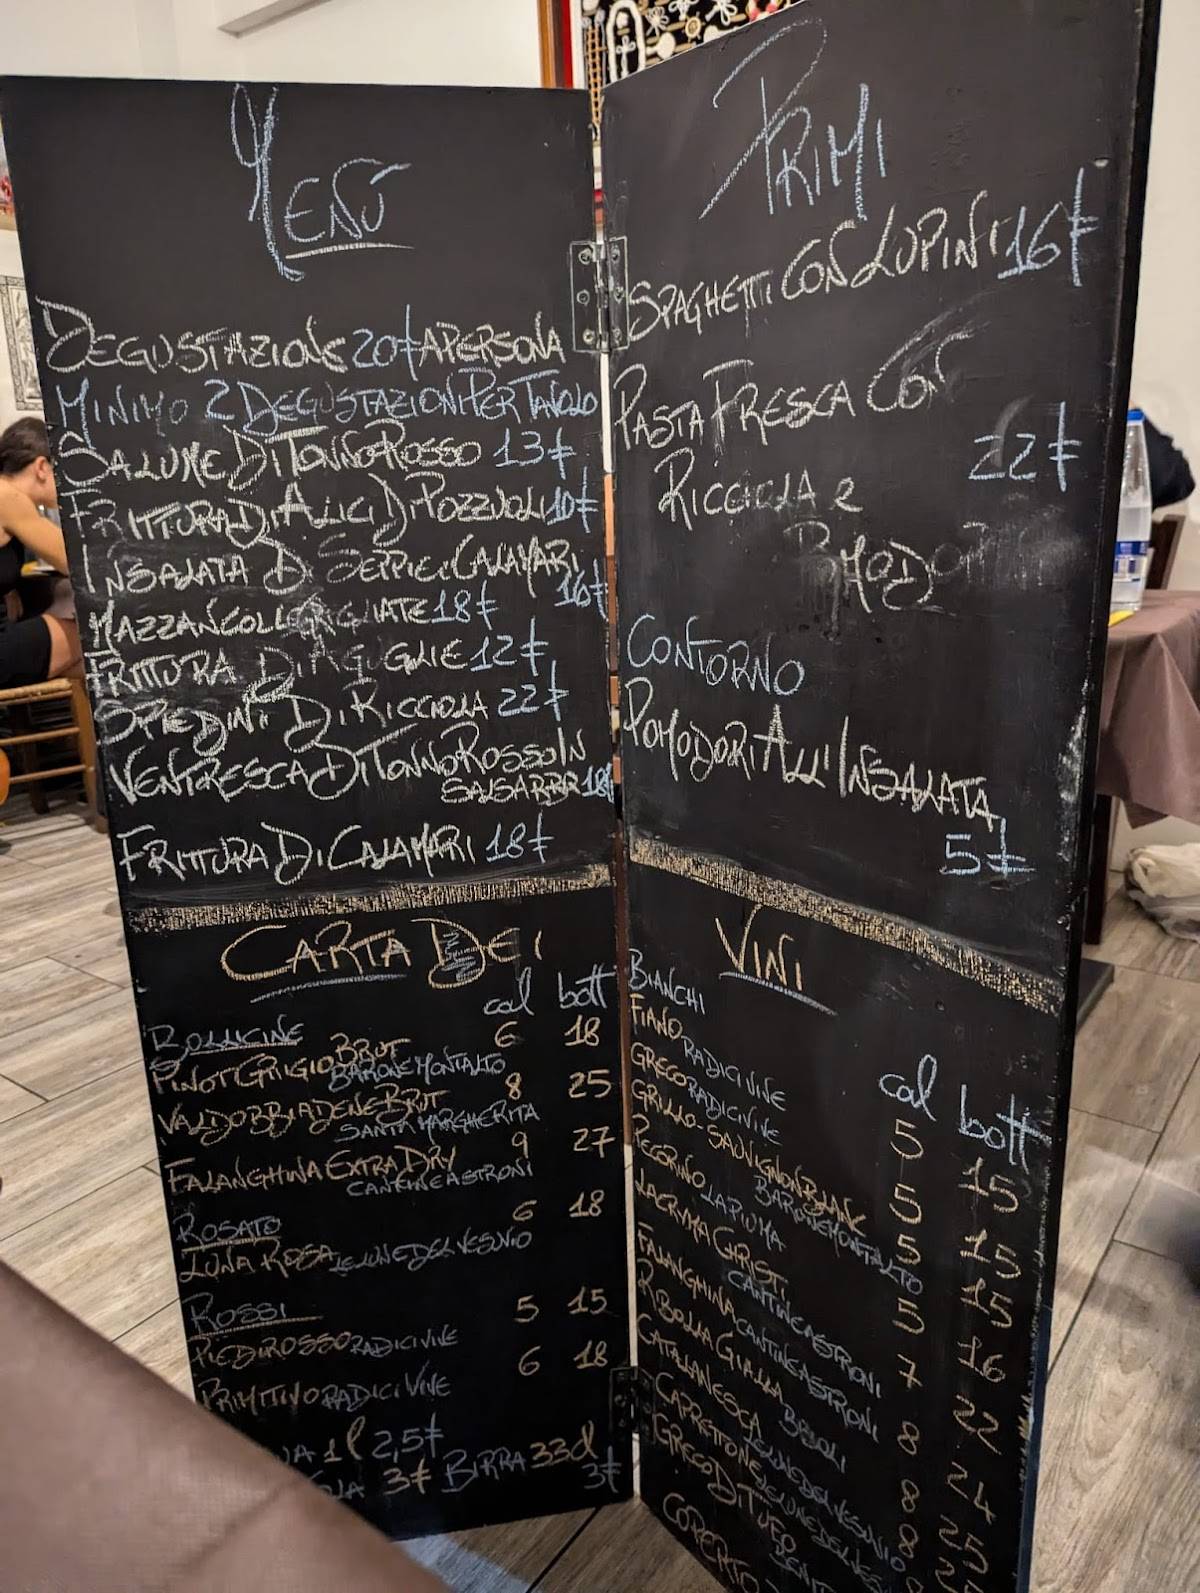 Menù
DEGUSTAZIONE 20€ A PERSONA
MINIMO 2 DEGUSTAZIONI PER TAVOLO
SALUME DI TONNO ROSSO 13€
FRITTURA DI ALICI DI POZZUOLI 10€
INSALATA DI SEPPIE E CALAMARI
16€
MAZZANCOLLE GRIGLIATE 18€
FRITTURA DI AGUGLIE 12€
SPIEDINI DI RICCIOLA 22€
VENTRESCA DI TONNO ROSSO IN
18€
FRITTURA DI CALAMARI 18€
CARTA DEI
cal bott
BOLLICINE 6 18
PINOT GRIGIO BRUT
BARONE MONTALTO
8 25
VALDOBBIADENE BRUT
SANTA MARGHERITA
9 27
FALANGHINA EXTRA DRY
CANTINE ASTRONI
6 18
ROSATO
LUNA ROSA LE LUNE DEL VESUVIO
ROSSI 5 15
PIEDIROSSO RADICI VIVE
6 18
PRIMITIVO RADICI VIVE
1l 2,5€
3€ BIRRA 33cl
3€
PRIMI
SPAGHETTI CON LUPINI 16€
PASTA FRESCA CON
22€
RICCIOLA E
CONTORNO
POMODORI ALL'INSALATA
5€
VINI
BIANCHI
cal bott
FIANO RADICI VIVE 5 15
GRECO RADICI VIVE 5 15
GRILLO-SAUVIGNON BLANC
BARONE MONTALTO 5 15
PECORINO LA PIUMA 5 16
LACRYMA CHRISTI
CANTINE ASTRONI 7 22
FALANGHINA CANTINE ASTRONI 8 24
RIBOLLA GIALLA 8 25
CATALANESCA LE LUNE DEL VESUVIO 8
CAPRETTONE LE LUNE DEL
GRECO DI TUFO
COPERTO